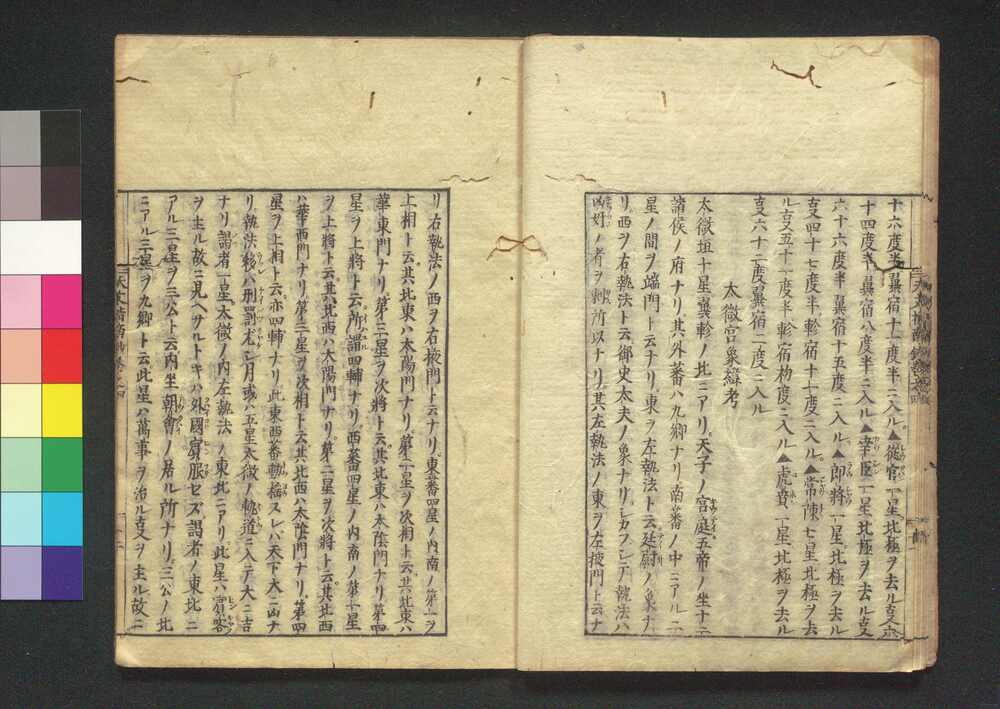 十六度半翼宿十一度半ニ入ル▲従官一星北極ヲ去ル亥
十四度半翼宿八度半ニ入ル▲幸臣一星北極ヲ去ル亥
六十六度半翼宿十五度ニ入ル▲郎将一星北極ヲ去ル
亥四十七度半軫宿十一度ニ入ル▲常陳七星北極ヲ去
ル亥五十一度半軫宿初度ニ入ル▲虎賁一星北極ヲ去ル
亥六十二度翼宿二度ニ入ル
太微宮象緯考
太微垣十星翼軫ノ北ニアリ天子ノ宮庭五帝ノ坐十二
諸侯ノ府ナリ其外蕃ハ九卿ナリ南蕃ノ中ニアル二
星ノ間ヲ端門ト云ナリ東ヲ左執法ト云廷尉ノ象ナ
リ西ヲ右執法ト云御史大夫ノ象ナリ執法ハ
凶奸ノ者ヲ刺所以ナリ其左執法ノ東ヲ左掖門ト云ナ
リ右執法ノ西ヲ右掖門ト云ナリ東蕃四星ノ内南ノ第一ヲ
上相ト云其北東ハ太陽門ナリ第二星ヲ次相ト云其北東ハ
華東門ナリ第三星ヲ次将ト云其北東ハ太陰門ナリ第四
星ヲ上将ト云所謂四輔ナリ西蕃四星ノ内南ノ第一星
ヲ上将ト云其北西ハ太陽門ナリ第二星ヲ次将ト云其北西
ハ華西門ナリ第三星ヲ次相ト云其北西ハ太陰門ナリ第四
星ヲ上相ト云亦四輔ナリ此東西蕃動揺スレバ天下大ニ凶ナ
リ執法移ハ刑罰尤シ月或ハ五星太微ノ軌道ニ入テ大ニ吉
ナリ謁者一星太微ノ内左執法ノ東北ニアリ此星ハ賓客
ヲ主ル故ニ見ヘザルトキハ外國賓服セズ謁者ノ東北ニ
アル三星ヲ三公ト云内坐朝會ノ居ル所ナリ三公ノ北
ニアル三星ヲ九卿ト云此星ハ萬事ヲ治ル亥ヲ主ル故ニ